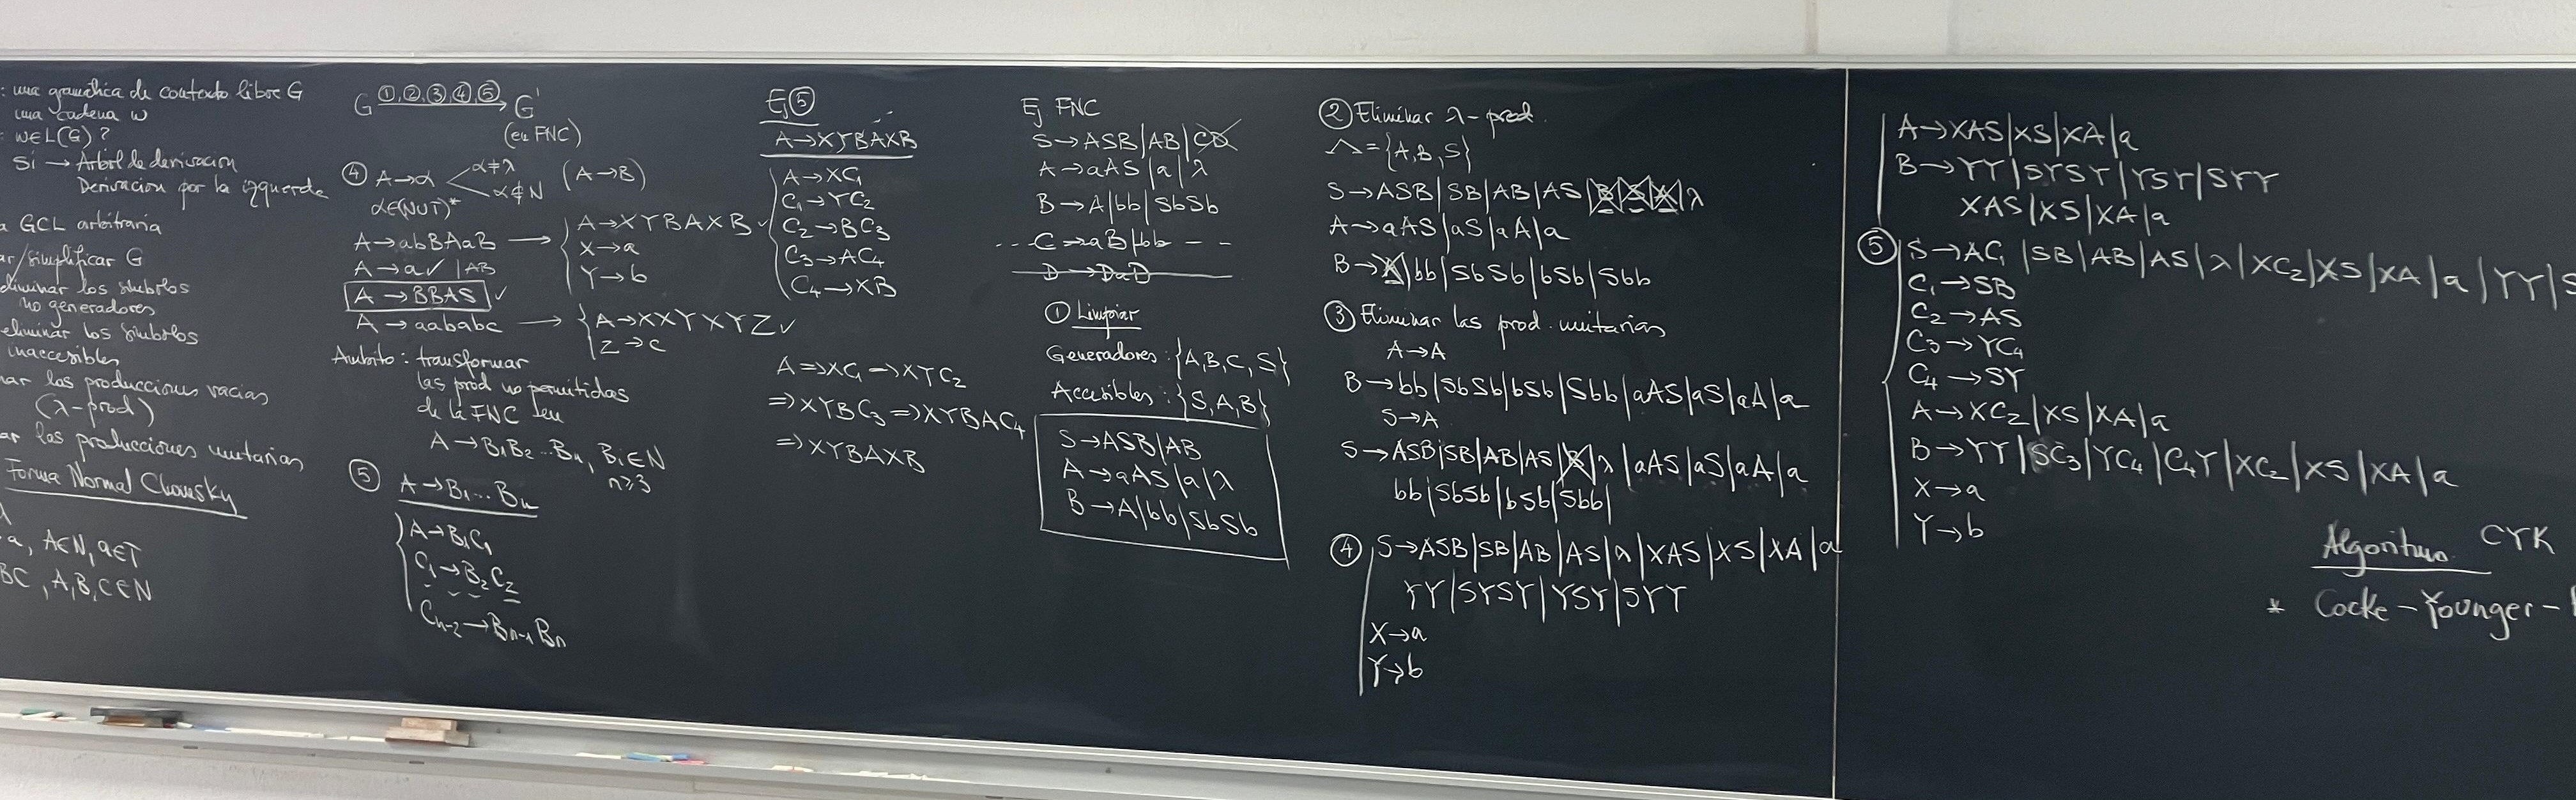 : una gramática de contexto libre G
una cadena w
: w∈L(G) ?
Sí → Árbol de derivación
Derivación por la izquierda
a GCL arbitraria
ar/simplificar G
eliminar los símbolos
no generadores
eliminar los símbolos
inaccesibles
nar las producciones vacías
(λ-prod)
ar las producciones unitarias
Forma Normal Chomsky
λ
a, A∈N, a∈T
BC, A,B,C∈N
G ①,②,③,④,⑤ → G'
(en FNC)
④ A→α α≠λ (A→B)
α∉N
α∈(N∪T)*
A→abBAaB → { A→XYBAXB ✓
X→a
Y→b
A→a ✓ |AB
A→BBAS ✓
A→aababc → { A→XXYXYZ ✓
Z→c
Ámbito: transformar
las prod no permitidas
de la FNC en
A→B₁B₂...Bn, Bi∈N
n≥3
⑤ A→B₁...Bn
A→B₁C₁
C₁→B₂C₂
Cn-2→Bn-1Bn
Ej ⑤
A→XYBAXB
A→XC₁
C₁→YC₂
C₂→BC₃
C₃→AC₄
C₄→XB
A⇒XC₁⇒XYC₂
⇒XYBC₃⇒XYBAC₄
⇒XYBAXB
Ej FNC
S→ASB|AB|CD
A→aAS|a|λ
B→A|bb|SbSb
C→aB|bb
D→DaD
① Limpiar
Generadores: {A,B,C,S}
Accesibles: {S,A,B}
S→ASB|AB
A→aAS|a|λ
B→A|bb|SbSb
② Eliminar λ-prod.
Λ={A,B,S}
S→ASB|SB|AB|AS|B|S|A|λ
A→aAS|aS|aA|a
B→A|bb|SbSb|bSb|Sbb
③ Eliminar las prod. unitarias
A→A
B→bb|SbSb|bSb|Sbb|aAS|aS|aA|a
S→A
S→ASB|SB|AB|AS|B|λ|aAS|aS|aA|a
bb|SbSb|bSb|Sbb|
④ S→ASB|SB|AB|AS|λ|XAS|XS|XA|a
YY|SYSY|YSY|SYY
X→a
Y→b
A→XAS|XS|XA|a
B→YY|SYSY|YSY|SYY
XAS|XS|XA|a
⑤ S→AC₁|SB|AB|AS|λ|XC₂|XS|XA|a|YY|S
C₁→SB
C₂→AS
C₃→YC₄
C₄→SY
A→XC₂|XS|XA|a
B→YY|SC₃|YC₄|C₄Y|XC₂|XS|XA|a
X→a
Y→b
Algoritmo CYK
* Cocke-Younger-